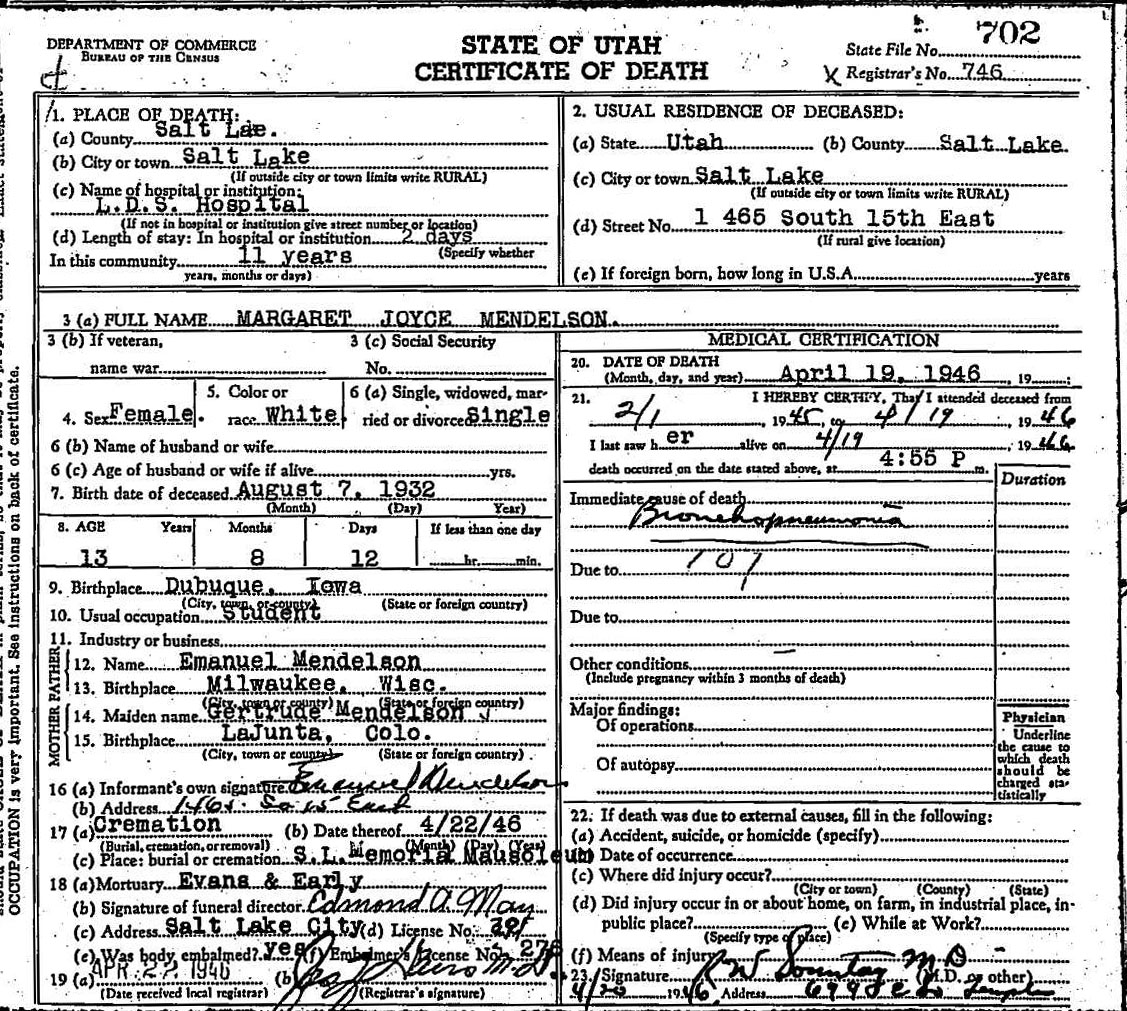 702
DEPARTMENT OF COMMERCE
BUREAU OF THE CENSUS
STATE OF UTAH
CERTIFICATE OF DEATH
State File No.
X Registrar's No. 746
1. PLACE OF DEATH:
(a) County Salt Lae.
(b) City or town Salt Lake
(If outside city or town limits write RURAL)
(c) Name of hospital or institution:
L.D.S. Hospital
(If not in hospital or institution give street number or location)
(d) Length of stay: In hospital or institution 2 days
(Specify whether
In this community 11 years
years, months or days)
2. USUAL RESIDENCE OF DECEASED:
(a) State Utah (b) County Salt Lake
(c) City or town Salt Lake
(If outside city or town limits write RURAL)
(d) Street No. 1 465 South 15th East
(If rural give location)
(e) If foreign born, how long in U.S.A. years
3 (a) FULL NAME MARGARET JOYCE MENDELSON.
3 (b) If veteran,
name war
3 (c) Social Security
No.
4. Sex Female.
5. Color or
race White
6 (a) Single, widowed, mar-
ried or divorced Single
6 (b) Name of husband or wife
6 (c) Age of husband or wife if alive yrs.
7. Birth date of deceased August 7, 1932
(Month) (Day) Year)
8. AGE Years Months Days If less than one day
13 8 12 hr. min.
9. Birthplace Dubuque, Iowa
(City, town, or county) (State or foreign country)
10. Usual occupation Student
11. Industry or business
FATHER
12. Name Emanuel Mendelson
13. Birthplace Milwaukee, Wisc.
(City, town or county) (State or foreign country)
MOTHER
14. Maiden name Gertrude Mendelson
15. Birthplace LaJunta, Colo.
(City, town or county) (State or foreign country)
16 (a) Informant's own signature Emanuel Mendelson
(b) Address 1465 So 15 East
17 (a) Cremation (b) Date thereof 4/22/46
(Burial, cremation, or removal) (Month) (Day) (Year)
(c) Place: burial or cremation S.L. Memoria Mausoleum
18 (a) Mortuary Evans & Early
(b) Signature of funeral director Edmond A. May
(c) Address Salt Lake City (d) License No.
(e) Was body embalmed? yes (f) Embalmer's License No. 276
19 (a) APR 22 1946 (b)
(Date received local registrar) (Registrar's signature)
MEDICAL CERTIFICATION
20. DATE OF DEATH
(Month, day, and year) April 19, 1946, 19
21. I HEREBY CERTIFY, That I attended deceased from
2/1, 1945, to 4/19, 1946
I last saw h er alive on 4/19, 1946
death occurred on the date stated above, at 4:55 P m.
Duration
Immediate cause of death
Bronchopneumonia
107
Due to
Due to
Other conditions
(Include pregnancy within 3 months of death)
Major findings:
Of operations
Of autopsy
Physician
Underline
the cause to
which death
should be
charged sta-
tistically
22. If death was due to external causes, fill in the following:
(a) Accident, suicide, or homicide (specify)
(b) Date of occurrence
(c) Where did injury occur?
(City or town) (County) (State)
(d) Did injury occur in or about home, on farm, in industrial place, in-
public place? (e) While at Work?
(Specify type of place)
(f) Means of injury
23. Signature R W Sonntag M D (M.D. or other)
4/20 1946 Address 699 E So Temple
OCCUPATION is very important. See instructions on back of certificate.